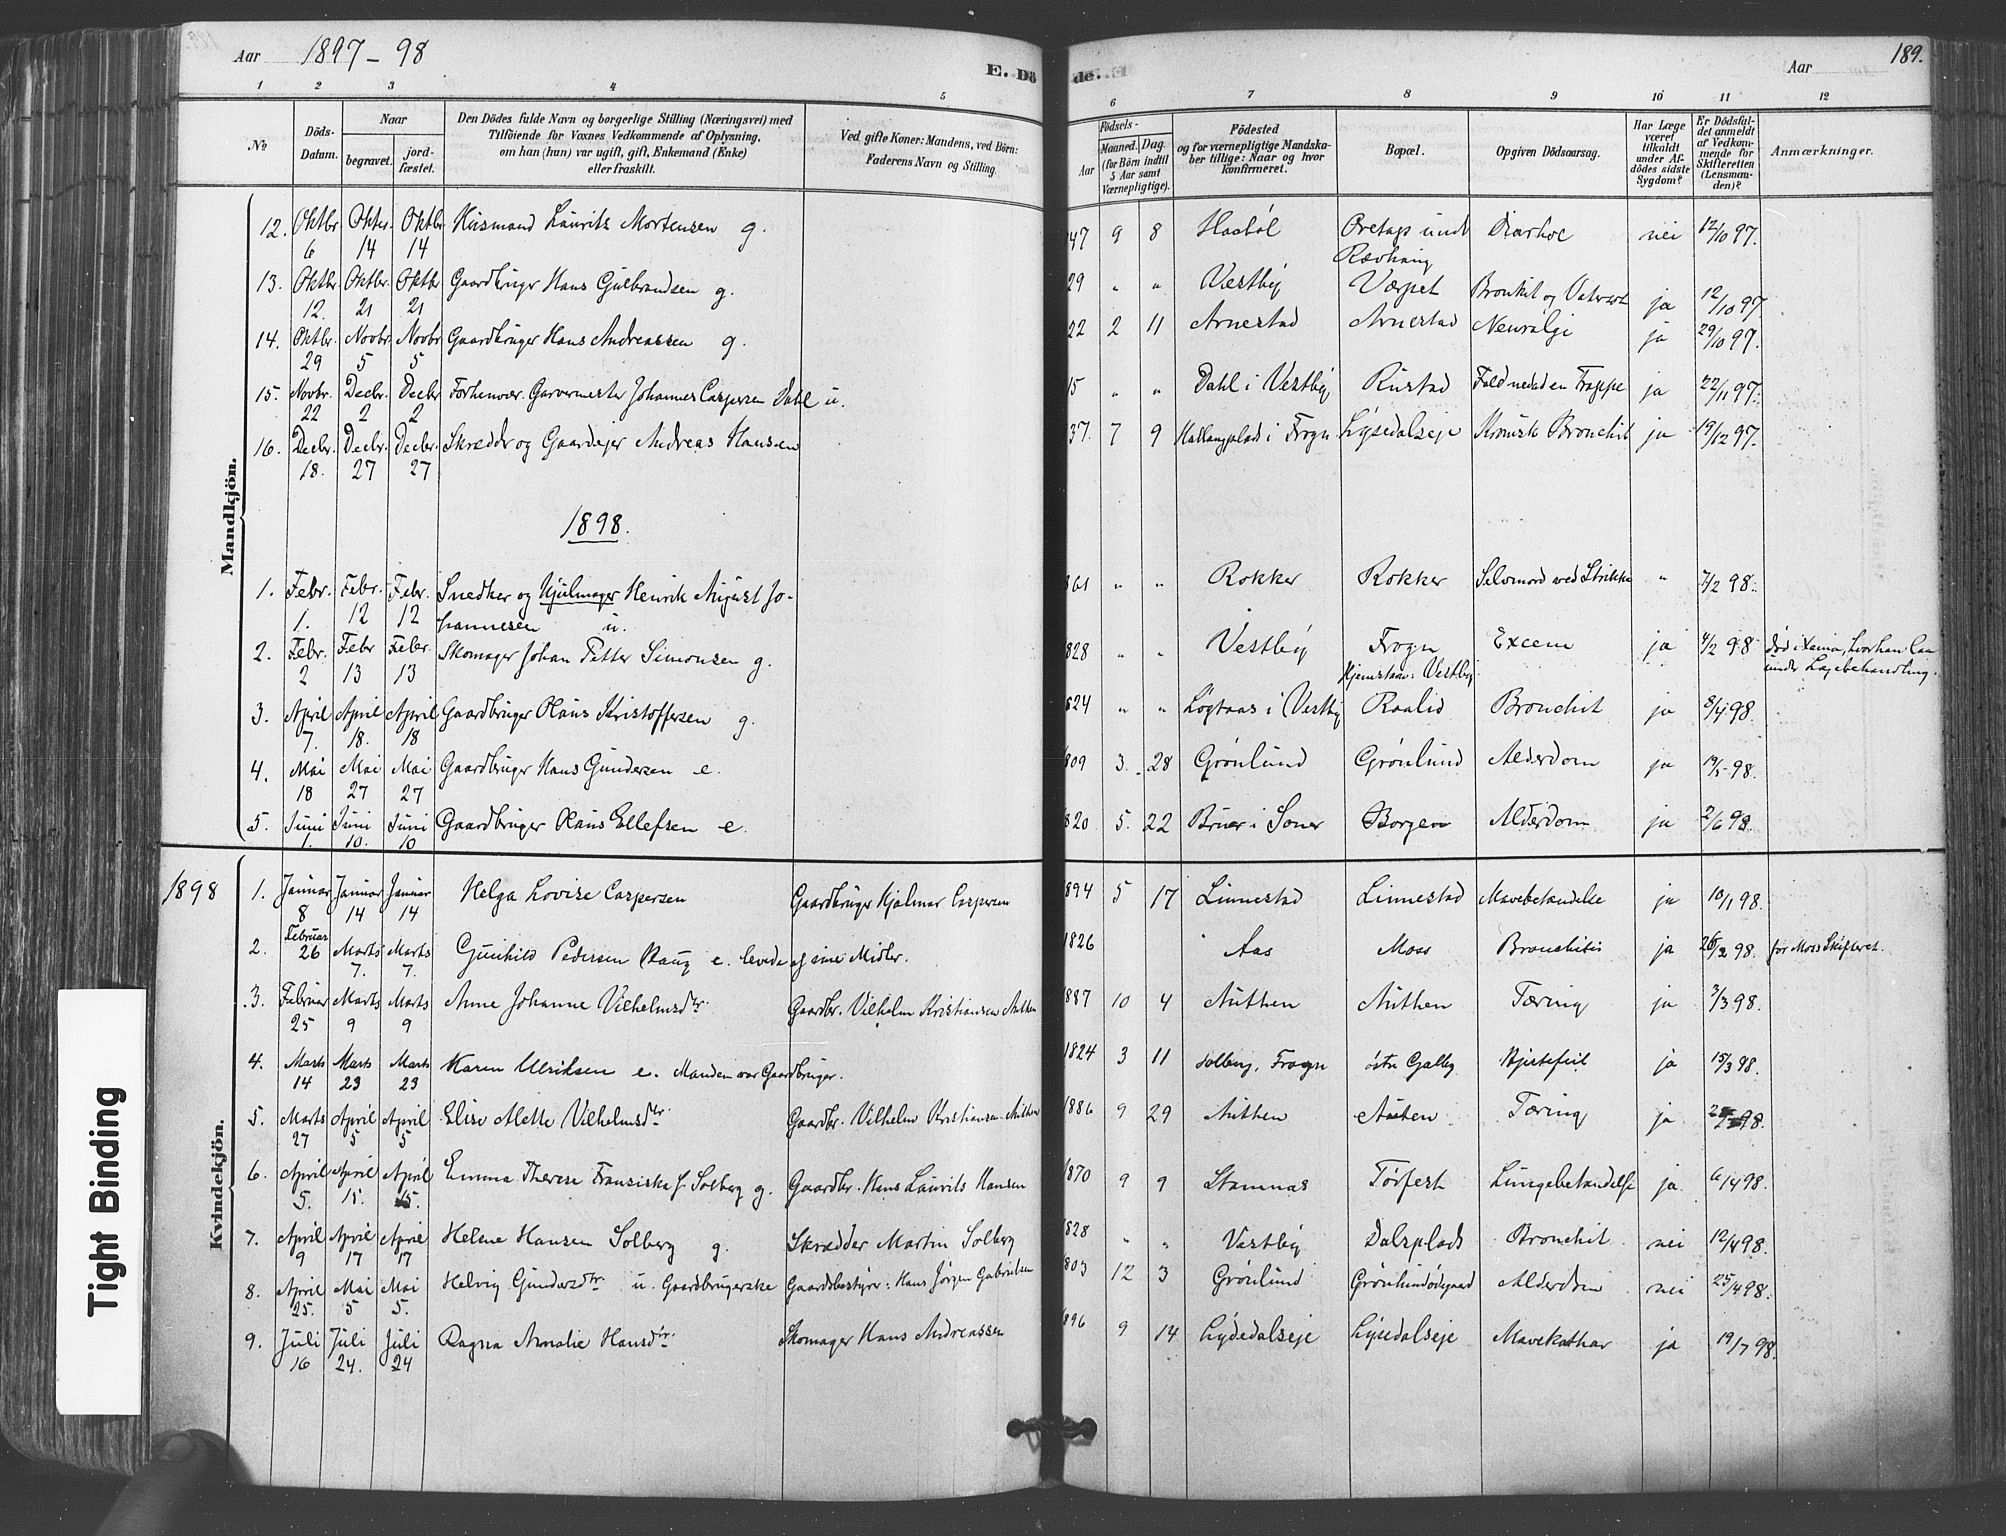 Aar 1897-98
E. Dö de.
Aar 189.
1 2 3 4 5 6 7 8 9 10 11 12
No
Döds-Datum.
Naar
begravet.
jord-fæstet.
Den Dödes fulde Navn og borgerlige Stilling (Næringsvei) med
Tilföiende for Voxnes Vedkommende af Oplysning,
om han (hun) var ugift, gift, Enkemand (Enke)
eller fraskilt.
Ved gifte Koner: Mandens, ved Börn:
Faderens Navn og Stilling.
Födsels-
Aar
Maaned. Dag.
(for Börn indtil
5 Aar samt
Værnepligtige).
Födested
og for værnepligtige Mandska-
ber tillige: Naar og hvor
konfirmeret.
Bopæl.
Opgiven Dödsaarsag.
Har Læge
været
tilkaldt
under Af-
dödes sidste
Sygdom?
Er Dödsfal-
det anmeldt
af Vedkom-
mende for
Skifteretten
(Lensman-
den)?
Anmærkninger.
Mandkjön.
12. Oktbr. 6 Oktbr. 14 Oktbr 14 Husmand Laurits Mortensen g. 47 9 8 nei 12/10 97.
13. Oktbr. 12. Oktbr. 21 Oktbr 21 Gaardbruger Hans Gulbrandsen g. 29 " " Vestby Værpet Bronkit og ja 12/10 97
14. Oktbr. 29 Novbr 5 Novbr 5 Gaardbruger Hans Andreassen g. 22 2 11 Arnestad Arnestad Neuralgi ja 29/10 97.
15. Novbr. 22 Decbr. 2 Decbr 2 Forhenvær. Garvermester Johannes Caspersen Dahl u. 15 " " Dahl i Vestby Rustad Fald ned ad en Trappe ja 22/11 97.
16. Decbr. 18. Decbr. 27 Decbr. 27 Skrædder og Gaardejer Andreas Hansen 37. 7 9 i Frogn Lysedalseje Kronisk Bronchit ja 19/12 97.
1898.
1. Febr. 1. Febr. 12 Febr. 12 Snedker og Hjulmager Henrik August Jo-
hannesen u. 861 " " Rokker Rokker Selvmord ved Strikke " 7/2 98.
2. Febr. 2 Febr 13 Febr. 13 Skomager Johan Petter Simonsen g. 828 " " Vestby Frogn Hjemstavn: Vestby Excem ja 4/2 98 død i hvor han laa
under Lægebehandling.
3. April 7. April 18. April 18 Gaardbruger Hans Kristoffersen g. 824 " " Løgtaas i Vestby Raalid Bronchit ja 8/4 98.
4. Mai 18 Mai 27 Mai 27 Gaardbruger Hans Gundersen e. 809 3. 28 Grønlund Grønlund Alderdom ja 19/5 98.
5. Juni 1. Juni 10. Juni 10 Gaardbruger Hans Ellefsen e. 820 5. 22 Bruer i Soner Borgen Alderdom ja 2/6 98.
1898
Kvindekjön.
1. Januar 8 Januar 14 Januar 14 Helga Lovise Caspersen Gaardbruger Hjalmar Caspersen 1894 5 17 Linnestad Linnestad Mavebetændelse ja 10/1 98.
2. Februar 26 Marts 7. Marts 7. Gunhild Pedersen Haug e. levede af sine Midler. 1826 Aas Moss Bronchitis ja 26/2 98. for Moss Skifteret.
3. Februar 25 Marts 9 Marts 9 Anne Johanne Vilhelmsdtr. Gaardbr. Vilhelm Kristiansen Authen 1887 10 4 Authen Authen Tæring ja 3/3 98.
4. Marts 14 Marts 23 Marts 23 Karen Ulriksen e. Manden var Gaardbruger. 1824 3 11 Solberg, Frogn østre Galby Hjertefeil ja 15/3 98.
5. Marts 27 April 5 April 5 Elise Mette Vilhelmsdtr. Gaardbr. Vilhelm Kristiansen Authen 1886 9 29 Authen Auten Tæring ja 98.
6. April 5. April 15. April 15. Emma Therese Fransiska f. Solberg g. Gaardbr. Hans Laurits Hansen 1870 9 9 Stamnas Torfest Lungebetændelse ja 6/4 98.
7. April 9 April 17 April 17 Helene Hansen Solberg g. Skrædder Martin Solberg 1828 " " Vestby Dalsplads Bronchit nei 12/4 98.
8. April 25. Mai 5 Mai 5. Helvig Gundersdtr. u. Gaardbrugerske Gaardbestyrer: Hans Jørgen Gabrielsen 803 12 3 Grønlund Grønlundødegaard Alderdom nei 25/4 98.
9. Juli 16 Juli 24. Juli 24 Ragna Amalie Hansdtr. Skomager Hans Andreassen 896 9 14 Lysedalseje Lysedalseje Mavekathar ja 19/7 98.
Tight Binding